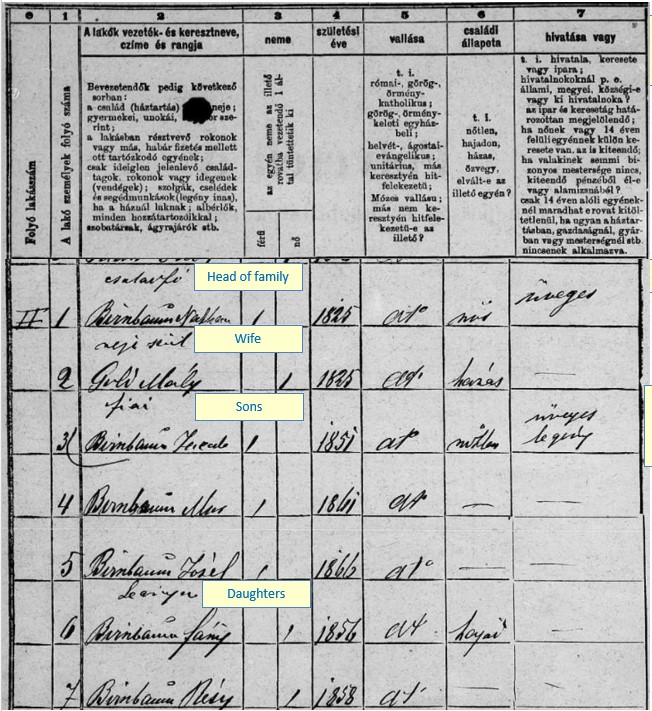 0 1 2 3 4 5 6 7
Folyó lakásszám
A lakó személyek folyó száma
A lakók vezeték- és keresztneve,
czíme és rangja
neme
születési
éve
vallása
családi
állapota
hivatása vagy
Bevezetendők pedig következő
sorban:
a család (háztartás) neje;
gyermekei, unokái, sze-
rint;
a lakásban résztvevő rokonok
vagy más, habár fizetés mellett
ott tartózkodó egyének;
csak ideiglen jelenlevő család-
tagok, rokonok vagy idegenek
(vendégek); szolgák, cselédek
és segédmunkások (legény inas),
ha a háznál laknak; albérlők,
minden hozzátartozóikkal;
szobatársak, ágyrajárók stb.
az egyén neme az illető
rovatba vezetendő 1 ál-
tal tüntetetik ki
férfi
nő
t. i.
római-, görög-,
örmény-
katholikus;
görög-, örmény-
keleti egyház-
beli;
helvét-, ágostai-
evangélikus;
unitárius, más
keresztyén hit-
felekezetű;
Mózes vallásu;
más nem ke-
resztyén hitfele-
kezetű-e az
illető?
t. i.
nőtlen,
hajadon,
házas,
özvegy,
elvált-e az
illető egyén?
t. i. hivatala, keresete
vagy ipara;
hivatalnokoknál p. e.
állami, megyei, községi-e
vagy ki hivatalnoka?
az ipar és keresetág hatá-
rozottan megjelölendő;
ha nőnek vagy 14 éven
felüli egyénnek külön kere-
sete van, az is kiteendő;
ha valakinek semmi bi-
zonyos mestersége nincs,
kiteendő pénzéből él-e
vagy alamizsnából?
csak 14 éven alóli egyének-
nél maradhat e rovat kitöl-
tetlenül, ha ugyan a háztar-
tásban, gazdaságnál, gyár-
ban vagy mesterségnél stb.
nincsenek alkalmazva.
családfő Head of family
II 1 Birnbaum Nathan 1 1825 nős üveges
neje szül Wife
2 Gold Maly 1 1825 házas —
fiai Sons
3 Birnbaum 1 1851 nőtlen üveges
legény
4 Birnbaum 1 1861 — —
5 Birnbaum Józef 1 1866 — —
Daughters
6 Birnbaum Fány 1 1856 hajad —
7 Birnbaum Résy 1 1858 — —